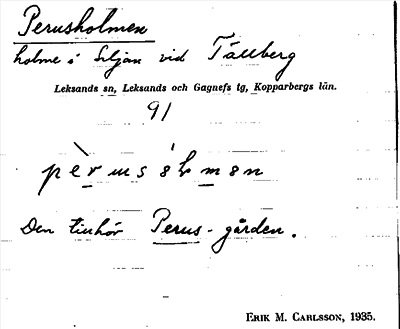 Perusholmen
holme i Siljan vid Tällberg
Leksands sn, Leksands och Gagnefs tg, Kopparbergs län.
91
Den tillhör Perus-gården.
ERIK M. CARLSSON, 1935.